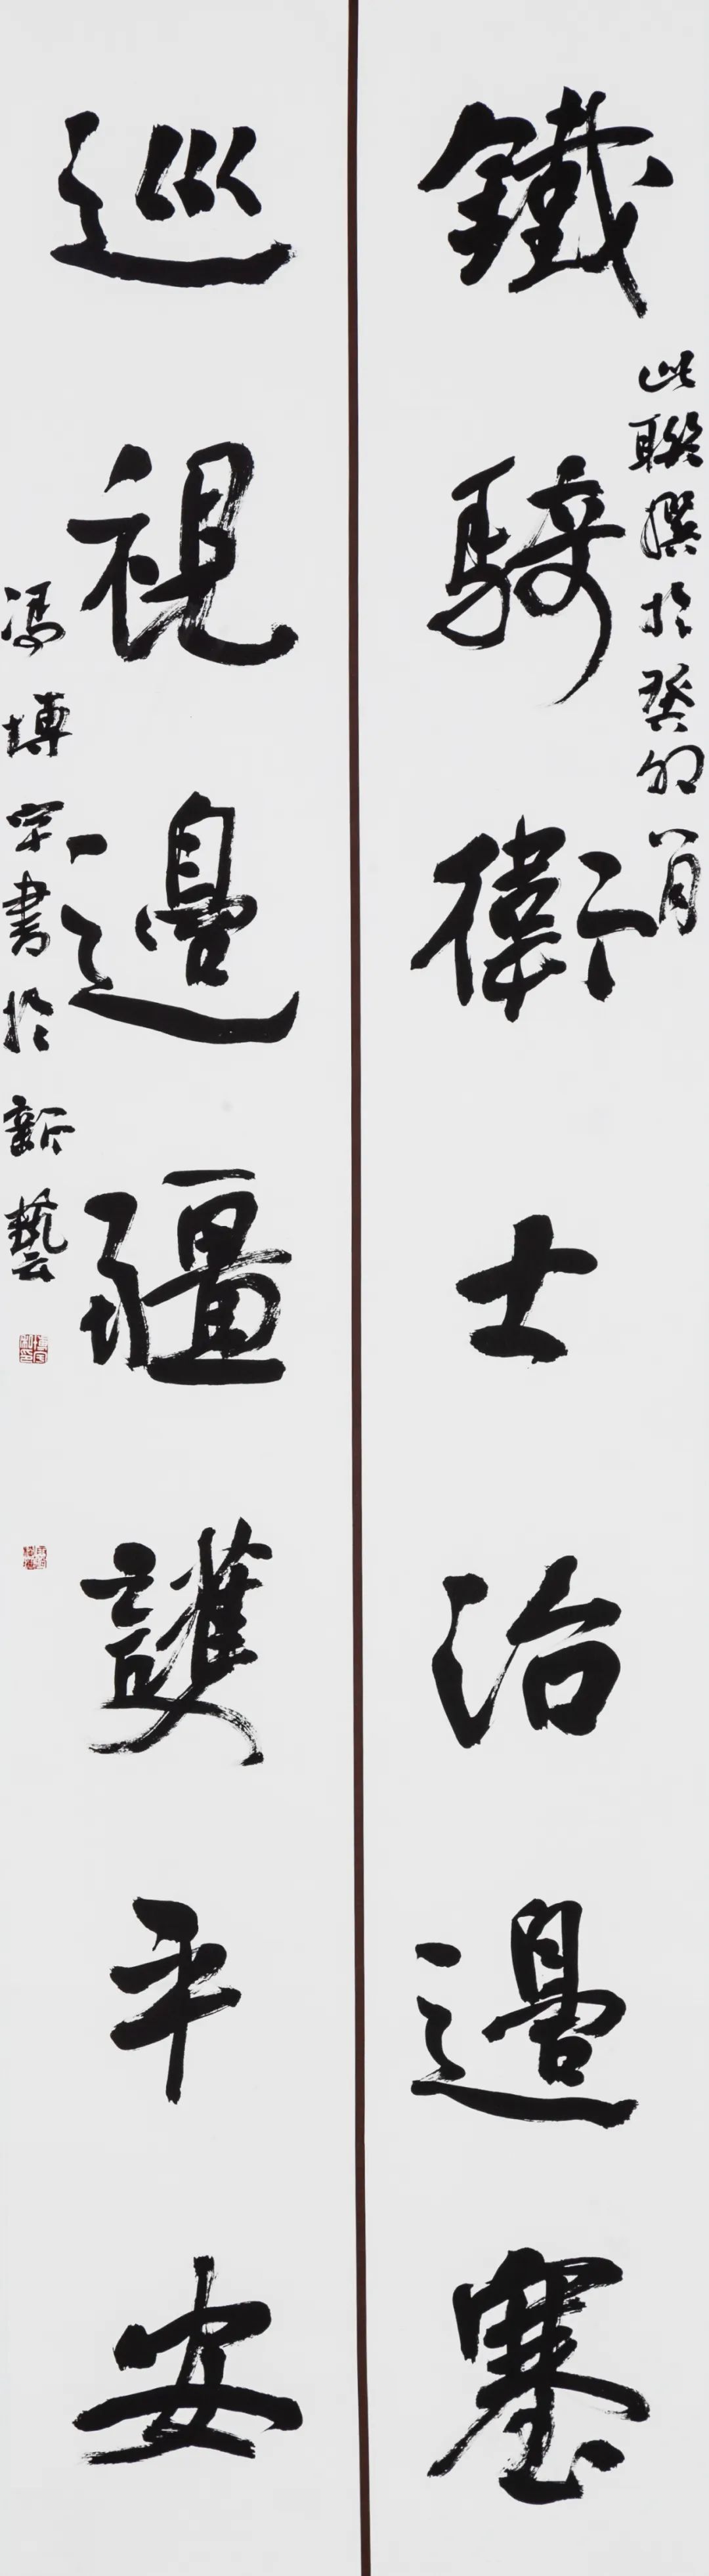 鐵騎衛士治邊塞
此聯撰於癸卯八月
巡視邊疆護平安
馮博宇書於新藝